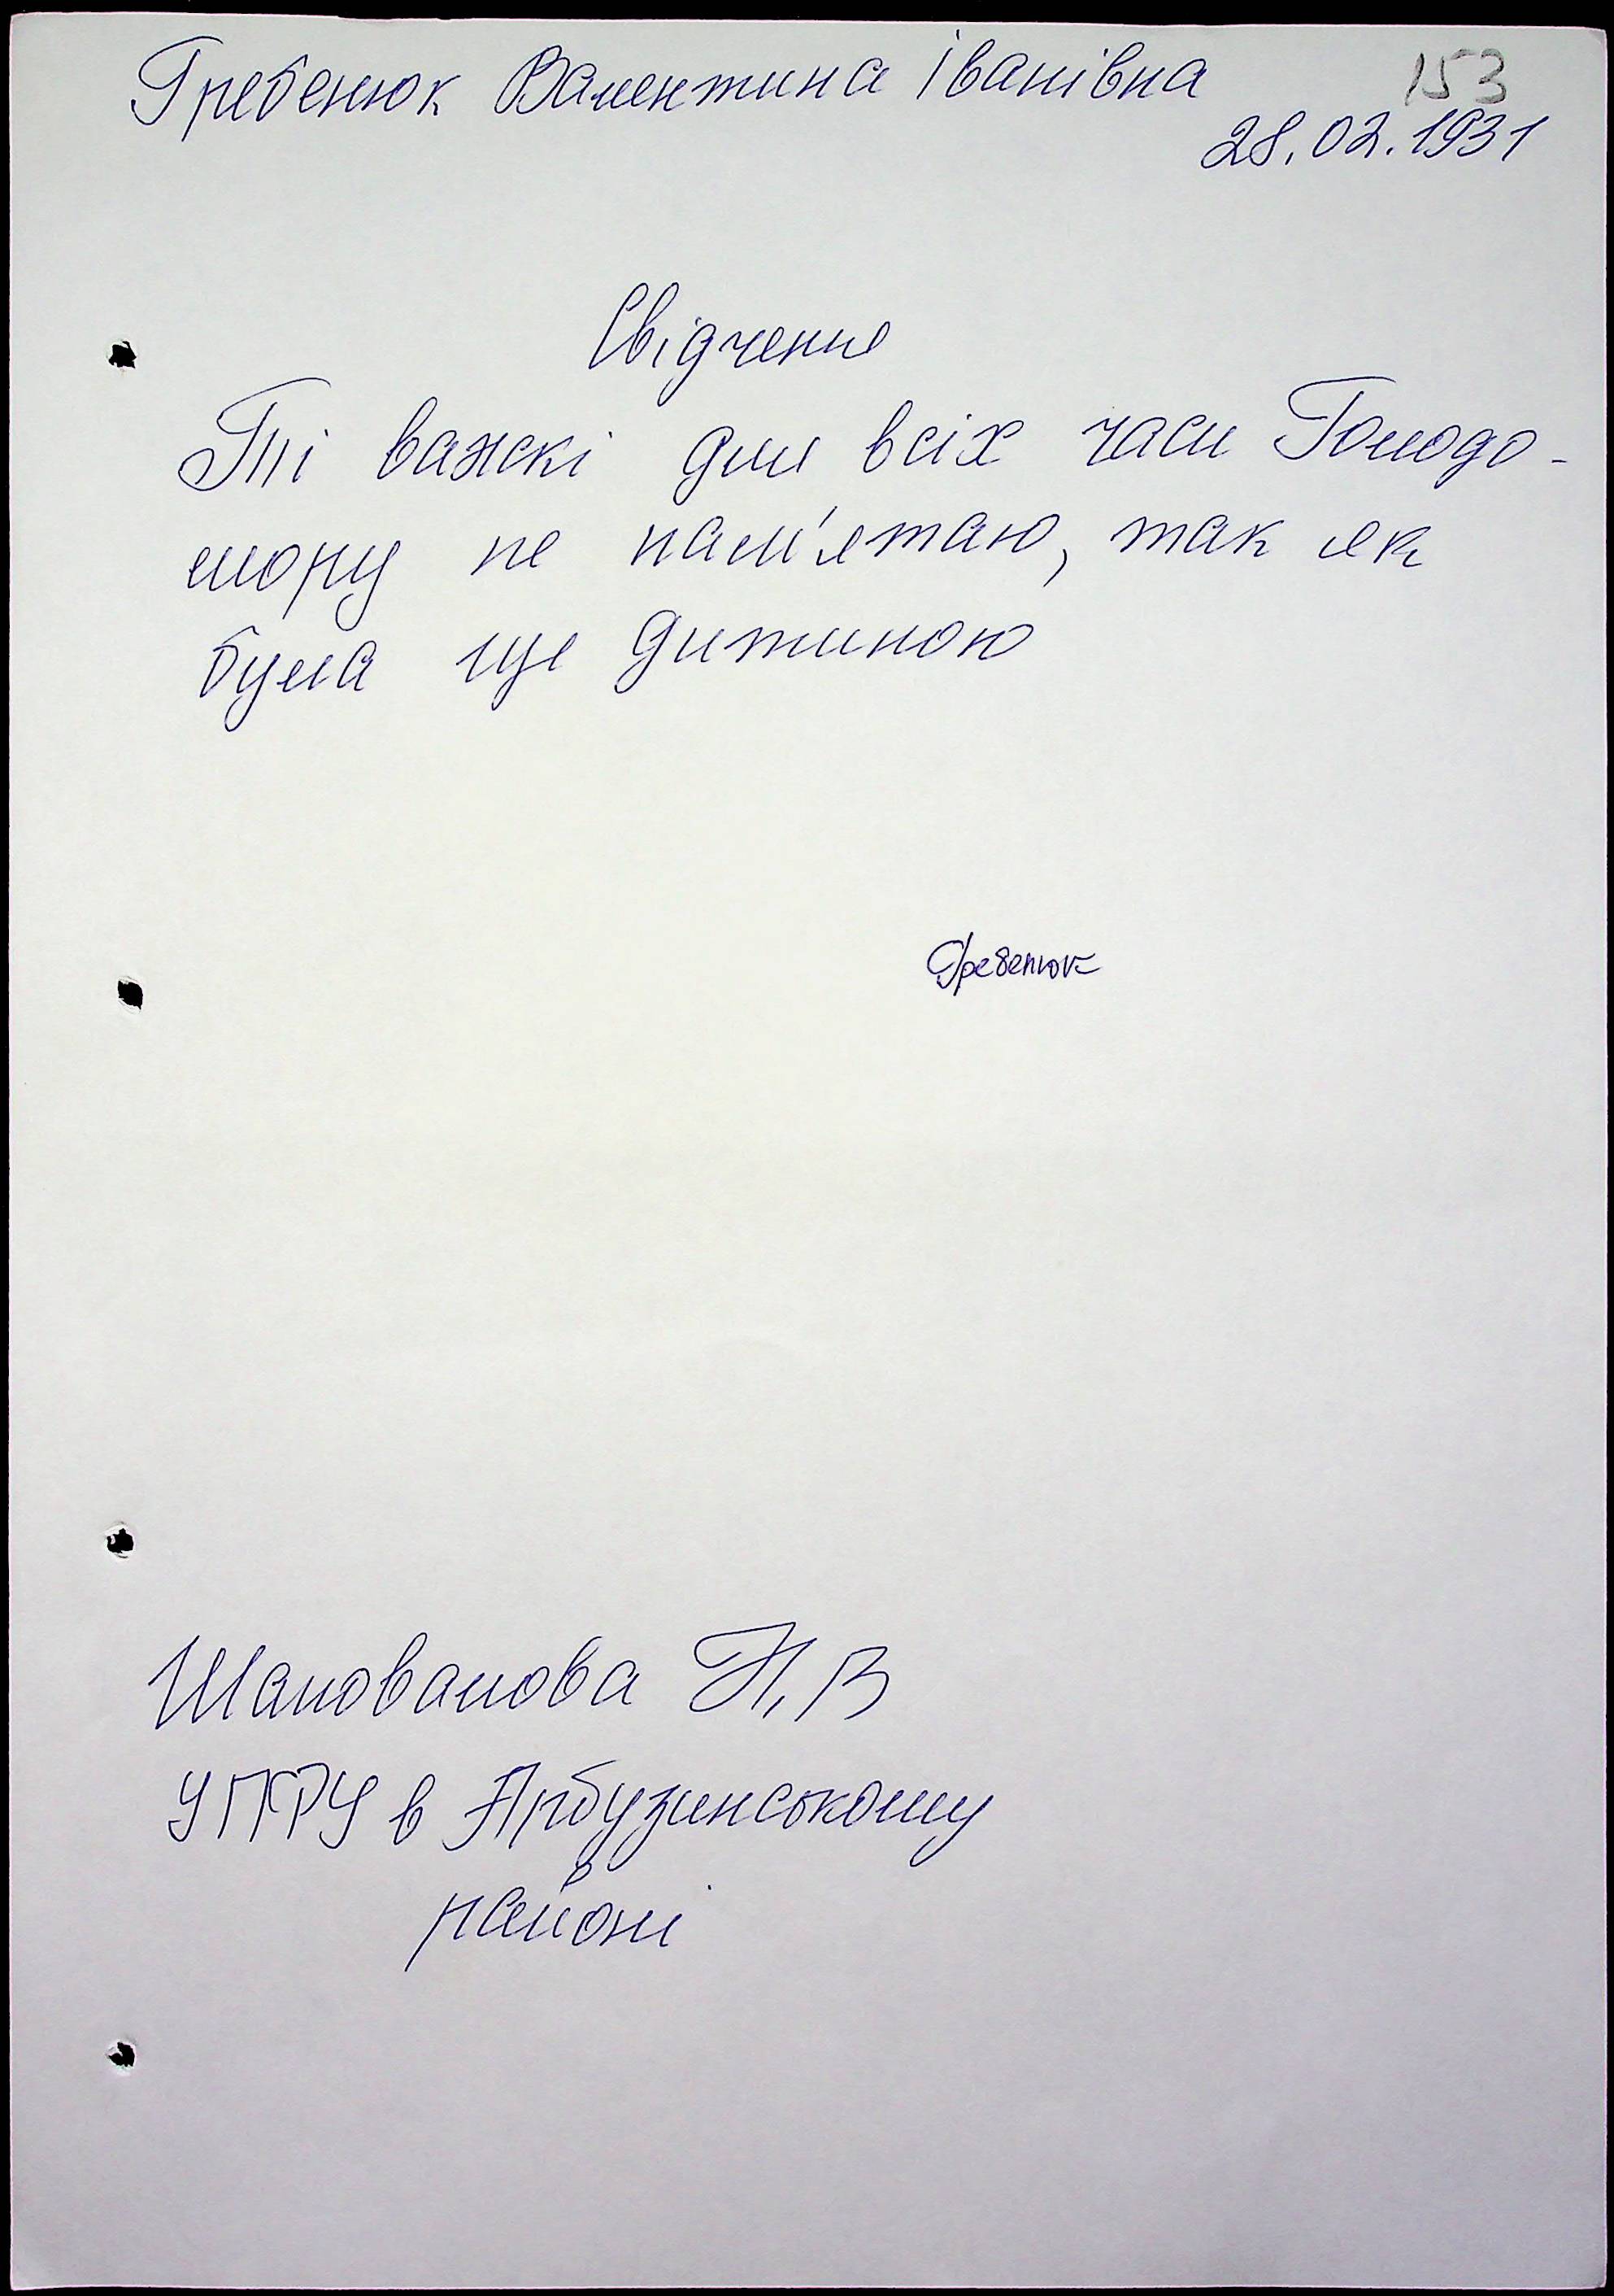 Гребенюк Валентина Іванівна 153
28.02.1931
Свідчення
Ті важкі для всіх часи Голодо-
мору не пам'ятаю, так як
була ще дитиною
Гребенюк
Шаповалова Н.В
УПФУ в Арбузинському
районі